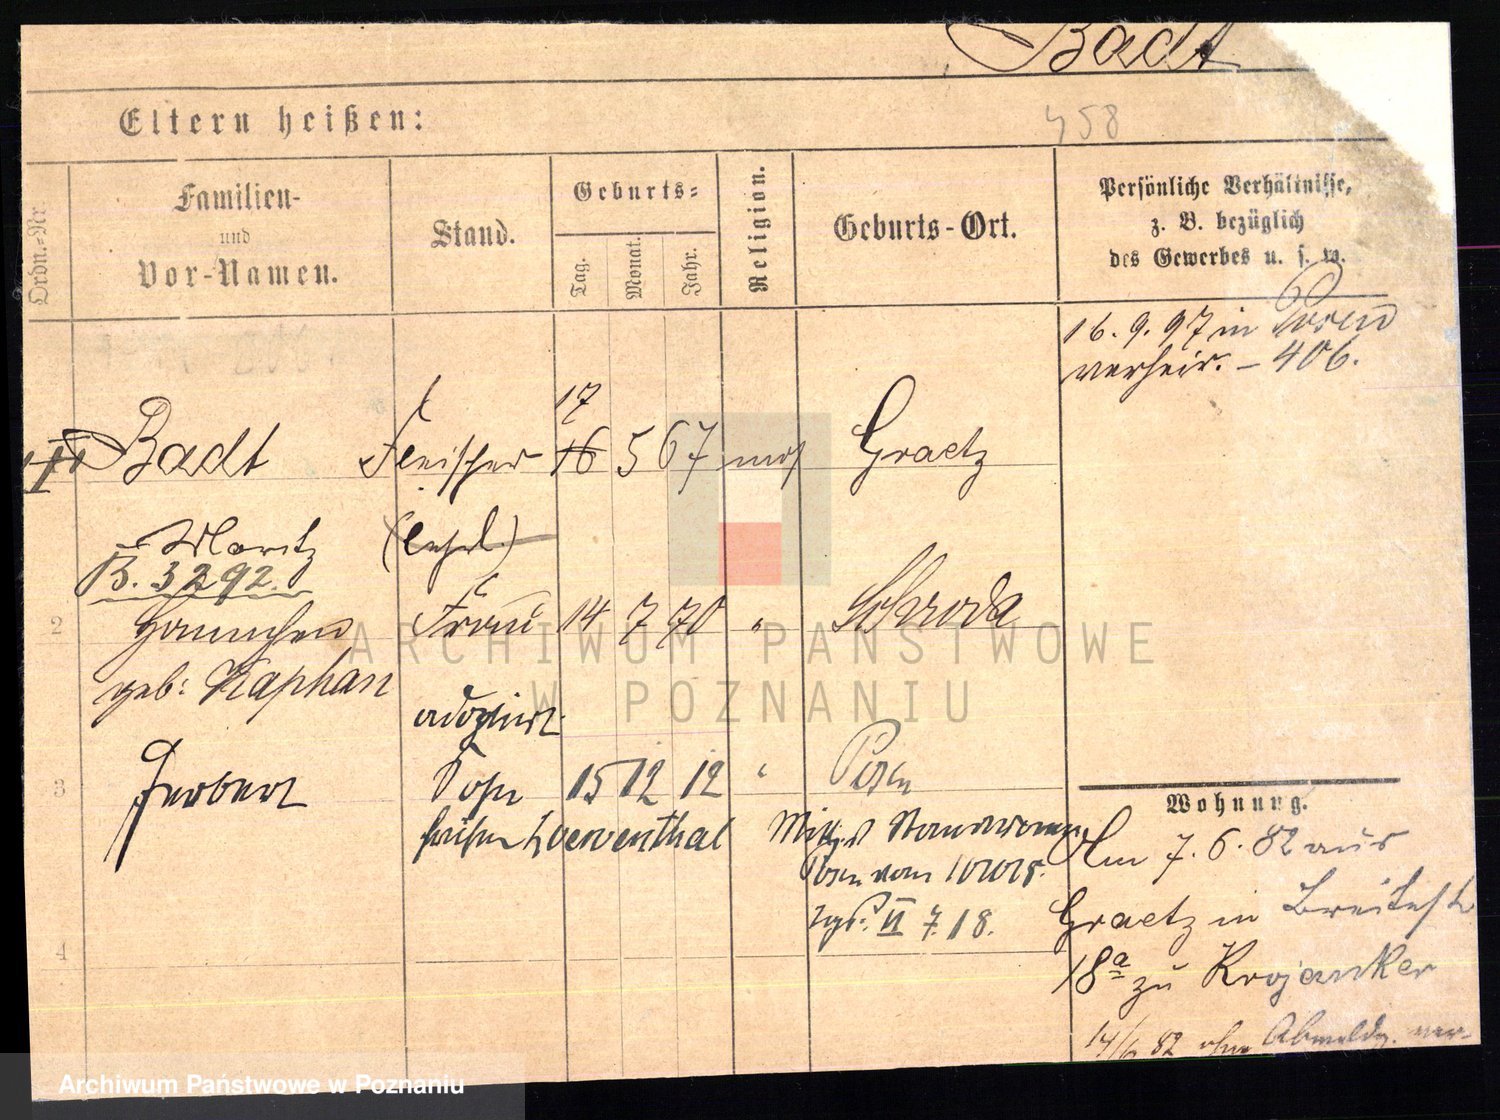 Badt
458
Eltern heißen:
Ordn.-Nr
Familien-
und
Vor-Namen.
Stand.
Geburts=
Tag.
Monat.
Jahr.
Religion.
Geburts-Ort.
Persönliche Verhältnisse,
z. B. bezüglich
des Gewerbes u. s. w.
16. 9. 97 in Posen
verheir. – 406.
17
Badt Fleischer 16 5 67 mos Graetz
Moritz
B. 3292.
2 Hannchen Frau 14 7 70 " Schroda
geb: Kaphan
adoptirt.
3 Herbert Sohn 15 12 12 " Posen
früher Loewenthal
Posen vom
II 7.18.
4
Wohnung.
Am 7. 6. 82 aus
Graetz in Breitestr
18a zu Krojanker
14/6 82 ohne Abmeldg. ver-
ARCHIWUM PAŃSTWOWE
W POZNANIU
Archiwum Państwowe w Poznaniu